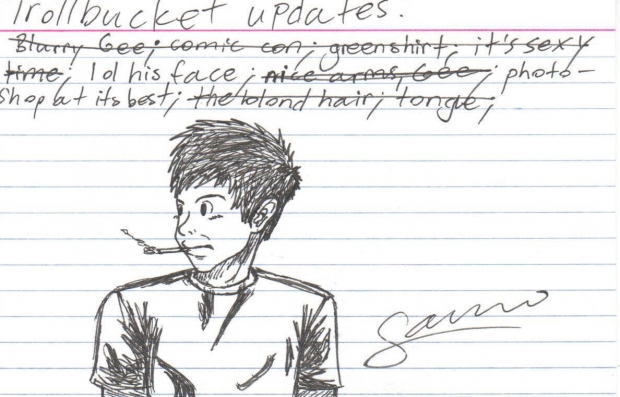 Trollbucket updates.
Blurry Gee; comic con; greenshirt; it's sexy
time; lol his face; nice arms, Gee; photo-
shop at its best; the blond hair; tongue;